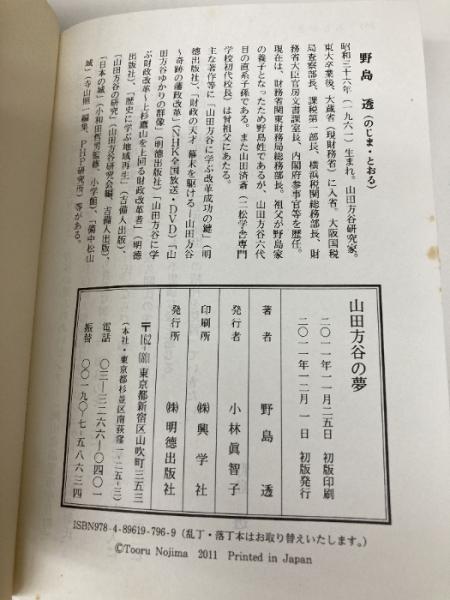 野島 透(のじま・とおる)
昭和三十六年(一九六一)生まれ。山田方谷研究家。
東大卒業後、大蔵省(現財務省)に入省、大阪国税
局査察部長、課税第一部長、横浜税関総務部長、財
務省大臣官房文書課室長、内閣府参事官等を歴任。
現在は、財務省関東財務局総務部長。祖父が野島家
の養子となったため野島姓であるが、山田方谷六代
目の直系子孫である。また山田済斎(二松学舎専門
学校初代校長)は曾祖父にあたる。
主な著作等に「山田方谷に学ぶ改革成功の鍵」(明
徳出版社)、「財政の天才 幕末を駆ける―山田方谷
~奇跡の藩政改革」(NHK全国放送・DVD)「山
田方谷ゆかりの群像」(明徳出版社)「山田方谷に学
ぶ財政改革~上杉鷹山を上回る財政改革者」(明徳
出版社)、「歴史に学ぶ地域再生」(吉備人出版)、
「山田方谷の研究」(山田方谷研究会編、吉備人出版)、
「日本の城」(小和田哲男監修、小学館)、「備中松山
城」(寺山照一編集、PHP研究所)等がある。
山田方谷の夢
二〇一一年一一月二五日 初版印刷
二〇一一年一二月 一日 初版発行
著者 野島 透
発行者 小林眞智子
印刷所 ㈱興学社
発行所 ㈱明徳出版社
〒162-0801 東京都新宿区山吹町三五三
(本社・東京都杉並区南荻窪一-二五-三)
電話 〇三-三二六六-〇四〇一
振替 〇〇一九〇-七-五八六三四
ISBN978-4-89619-796-9(乱丁・落丁本はお取り替えいたします。)
©Tooru Nojima 2011 Printed in Japan